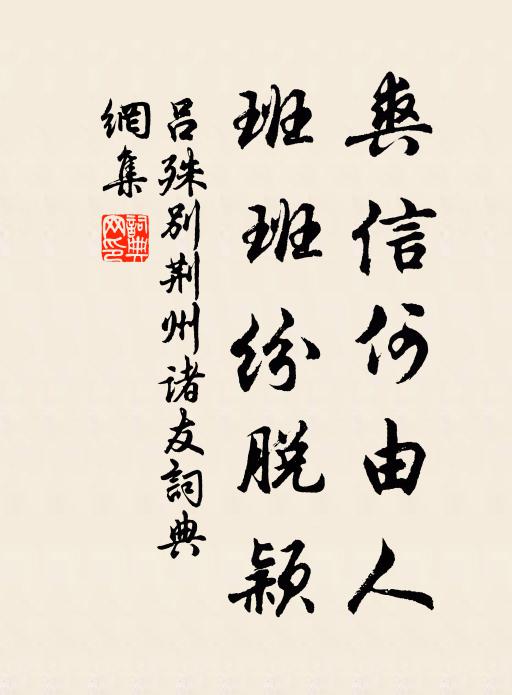 爽信何由人
班班紛脱穎
吕殊别荆州诸友詞典
網集
詞典網印